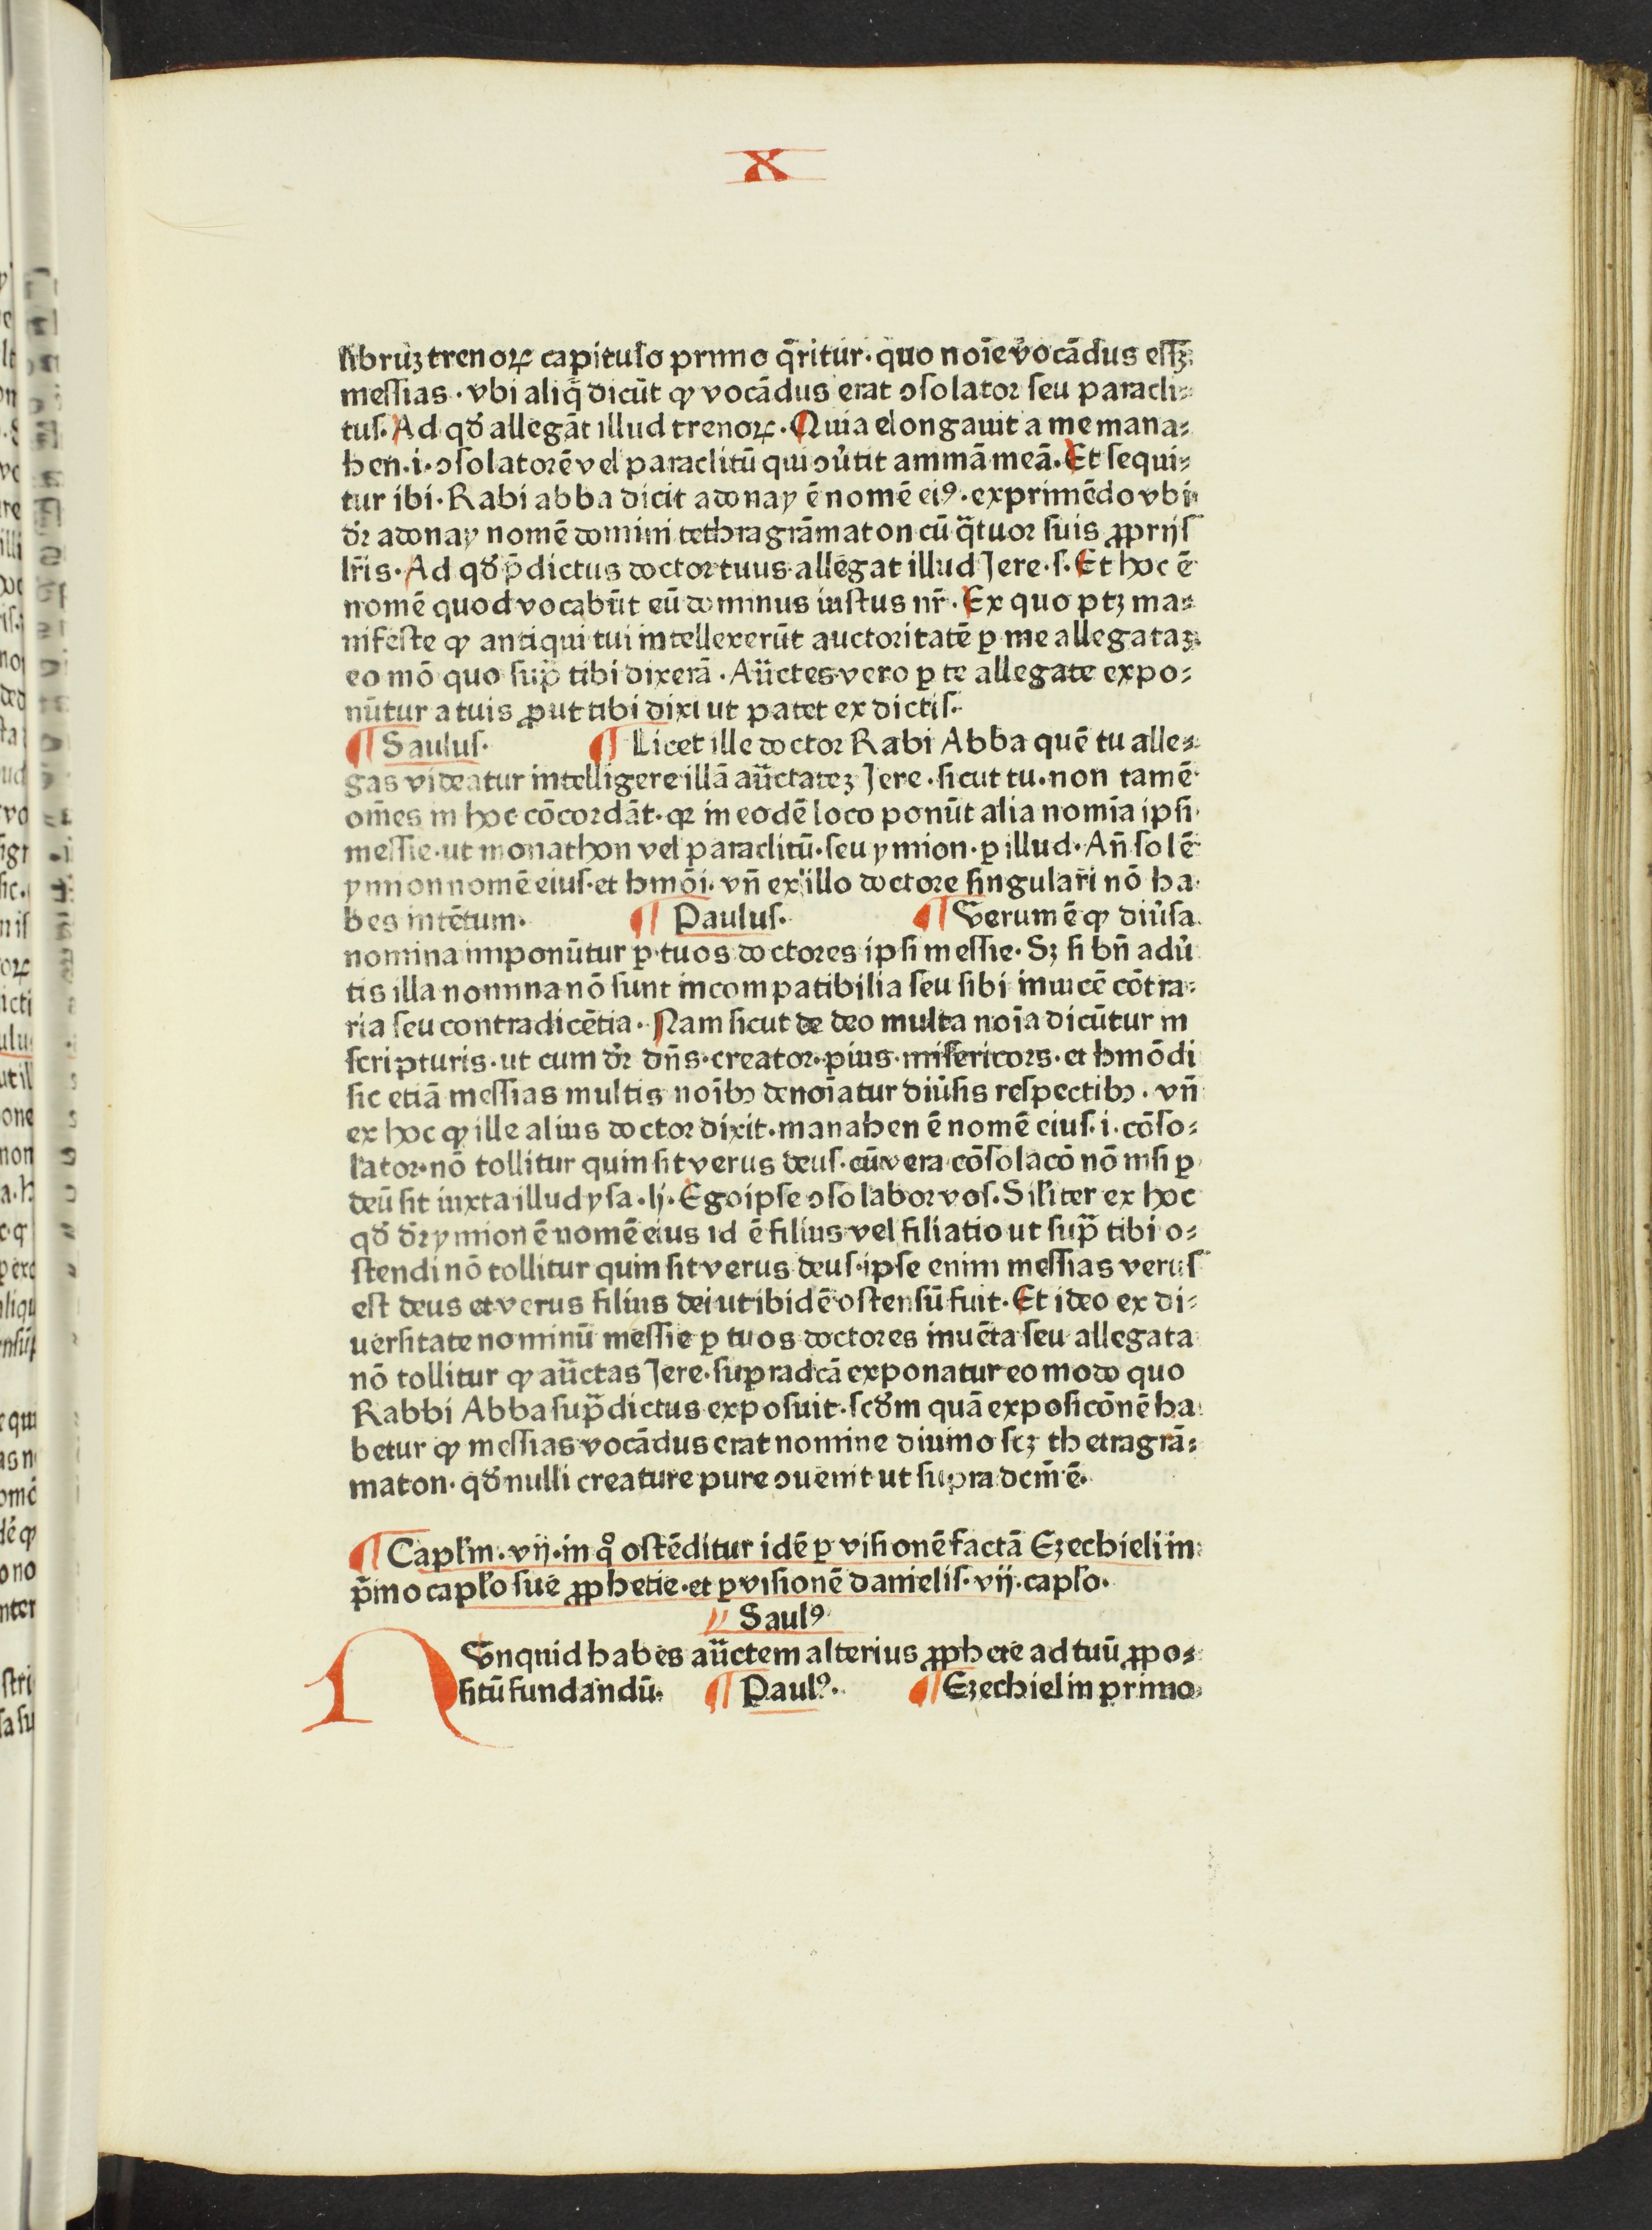 X
libruꝫ trenoꝝ capitulo primo q̄ritur· quo noīe vocādus esſꝫ
meſſias · vbi aliq̄ dicūt ꝙ vocādus erat ↄſolator ſeu paracli⸗
tuſ· Ad qð allegāt illud trenoꝝ · Quia elongauit a me mana⸗
hen·i·ↄſolatorē vel paraclitū qui ↄu̓tit animā meā· Et ſequi⸗
tur ibi· Rabi abba dicit adonay ē nomē eiꝰ·exprimēdo vbi
dr̄ adonay nomē domini tethragrāmaton cū q̄tuor ſuis ꝓprijſ
lr̄is· Ad qð p̄dictus doctor tuus allegat illud Jere·ſ· Et hoc ē
nomē quod vocabūt eū dominus iuſtus nr̄ · Ex quo ptꝫ ma⸗
nifeſte ꝙ antiqui tui intellexerūt auctoritatē ꝑ me allegataꝫ
eo mō quo ſup̄ tibi dixerā · Au̅ctes vero ꝑ te allegate expo⸗
nūtur a tuis ꝓut tibi dixi ut patet ex dictiſ·
¶ Sauluſ· ¶ Licet ille doctor Rabi Abba quē tu alle⸗
gas videatur intelligere illā au̅ctateꝫ Jere·ſicut tu·non tamē
om̄es in hoc cōcordāt·qꝛ in eodē loco ponūt alia nomīa ipſi·
meſſie·ut monathon vel paraclitū·ſeu ymion·ꝑ illud·An̄ ſolē
ynnon nomē eiuſ·et hmōi·vn̄ ex illo doctore ſingulari nō ha
bes intētum· ¶ Pauluſ· ¶ Verum ē ꝙ diu̓ſa
nomina imponūtur ꝑ tuos doctores ipſi meſſie· Sꝫ ſi bn̄ adu̓
tis illa nomina nō ſunt incompatibilia ſeu ſibi inuicē cōtra⸗
ria ſeu contradicētia· Nam ſicut de deo multa noīa dicūtur in
ſcripturis·ut cum dr̄ dn̄s·creator·pius·miſericors·et hmōdi
ſic etiā meſſias multis noībꝫ denoīatur diu̓ſis reſpectibꝫ · vn̄
ex hoc ꝙ ille alius doctor dixit·manahen ē nomē eiuſ·i·cōſo⸗
lator·nō tollitur quin ſit verus deuſ·cū vera cōſolacō nō niſi ꝑ
deū ſit iuxta illud yſa·lj· Ego ipſe ↄſolabor voſ· Sil̓iter ex hoc
qð dr̄ ymion ē nomē eius id ē filius vel filiatio ut ſup̄ tibi o⸗
ſtendi nō tollitur quin ſit verus deuſ·ipſe enim meſſias veruſ
eſt deus et verus filius dei ut ibidē oſtenſū fuit· Et ideo ex di⸗
uerſitate nominū meſſie ꝑ tuos doctores inuēta ſeu allegata
nō tollitur ꝙ au̅ctas Jere·ſupradcā exponatur eo modo quo
Rabbi Abba ſup̄dictus expoſuit·ſcðm quā expoſicōnē ha
betur ꝙ meſſias vocādus erat nomine diuino ſcꝫ thetragrā⸗
maton· qð nulli creature pure ↄuenit ut ſupra dcm̄ ē·
¶ Capl̓m·vij·in qͦ oſtēditur idē ꝑ viſionē factā Ezechieli in
p̄mo capl̓o ſue ꝓphetie·et ꝑ viſionē danielis·vij·capl̓o·
// Saulꝰ
NVnquid habes au̅ctem alterius ꝓphete ad tuū ꝓpo⸗
ſitū fundandū· ¶ Paulꝰ· ¶ Ezechiel in primo